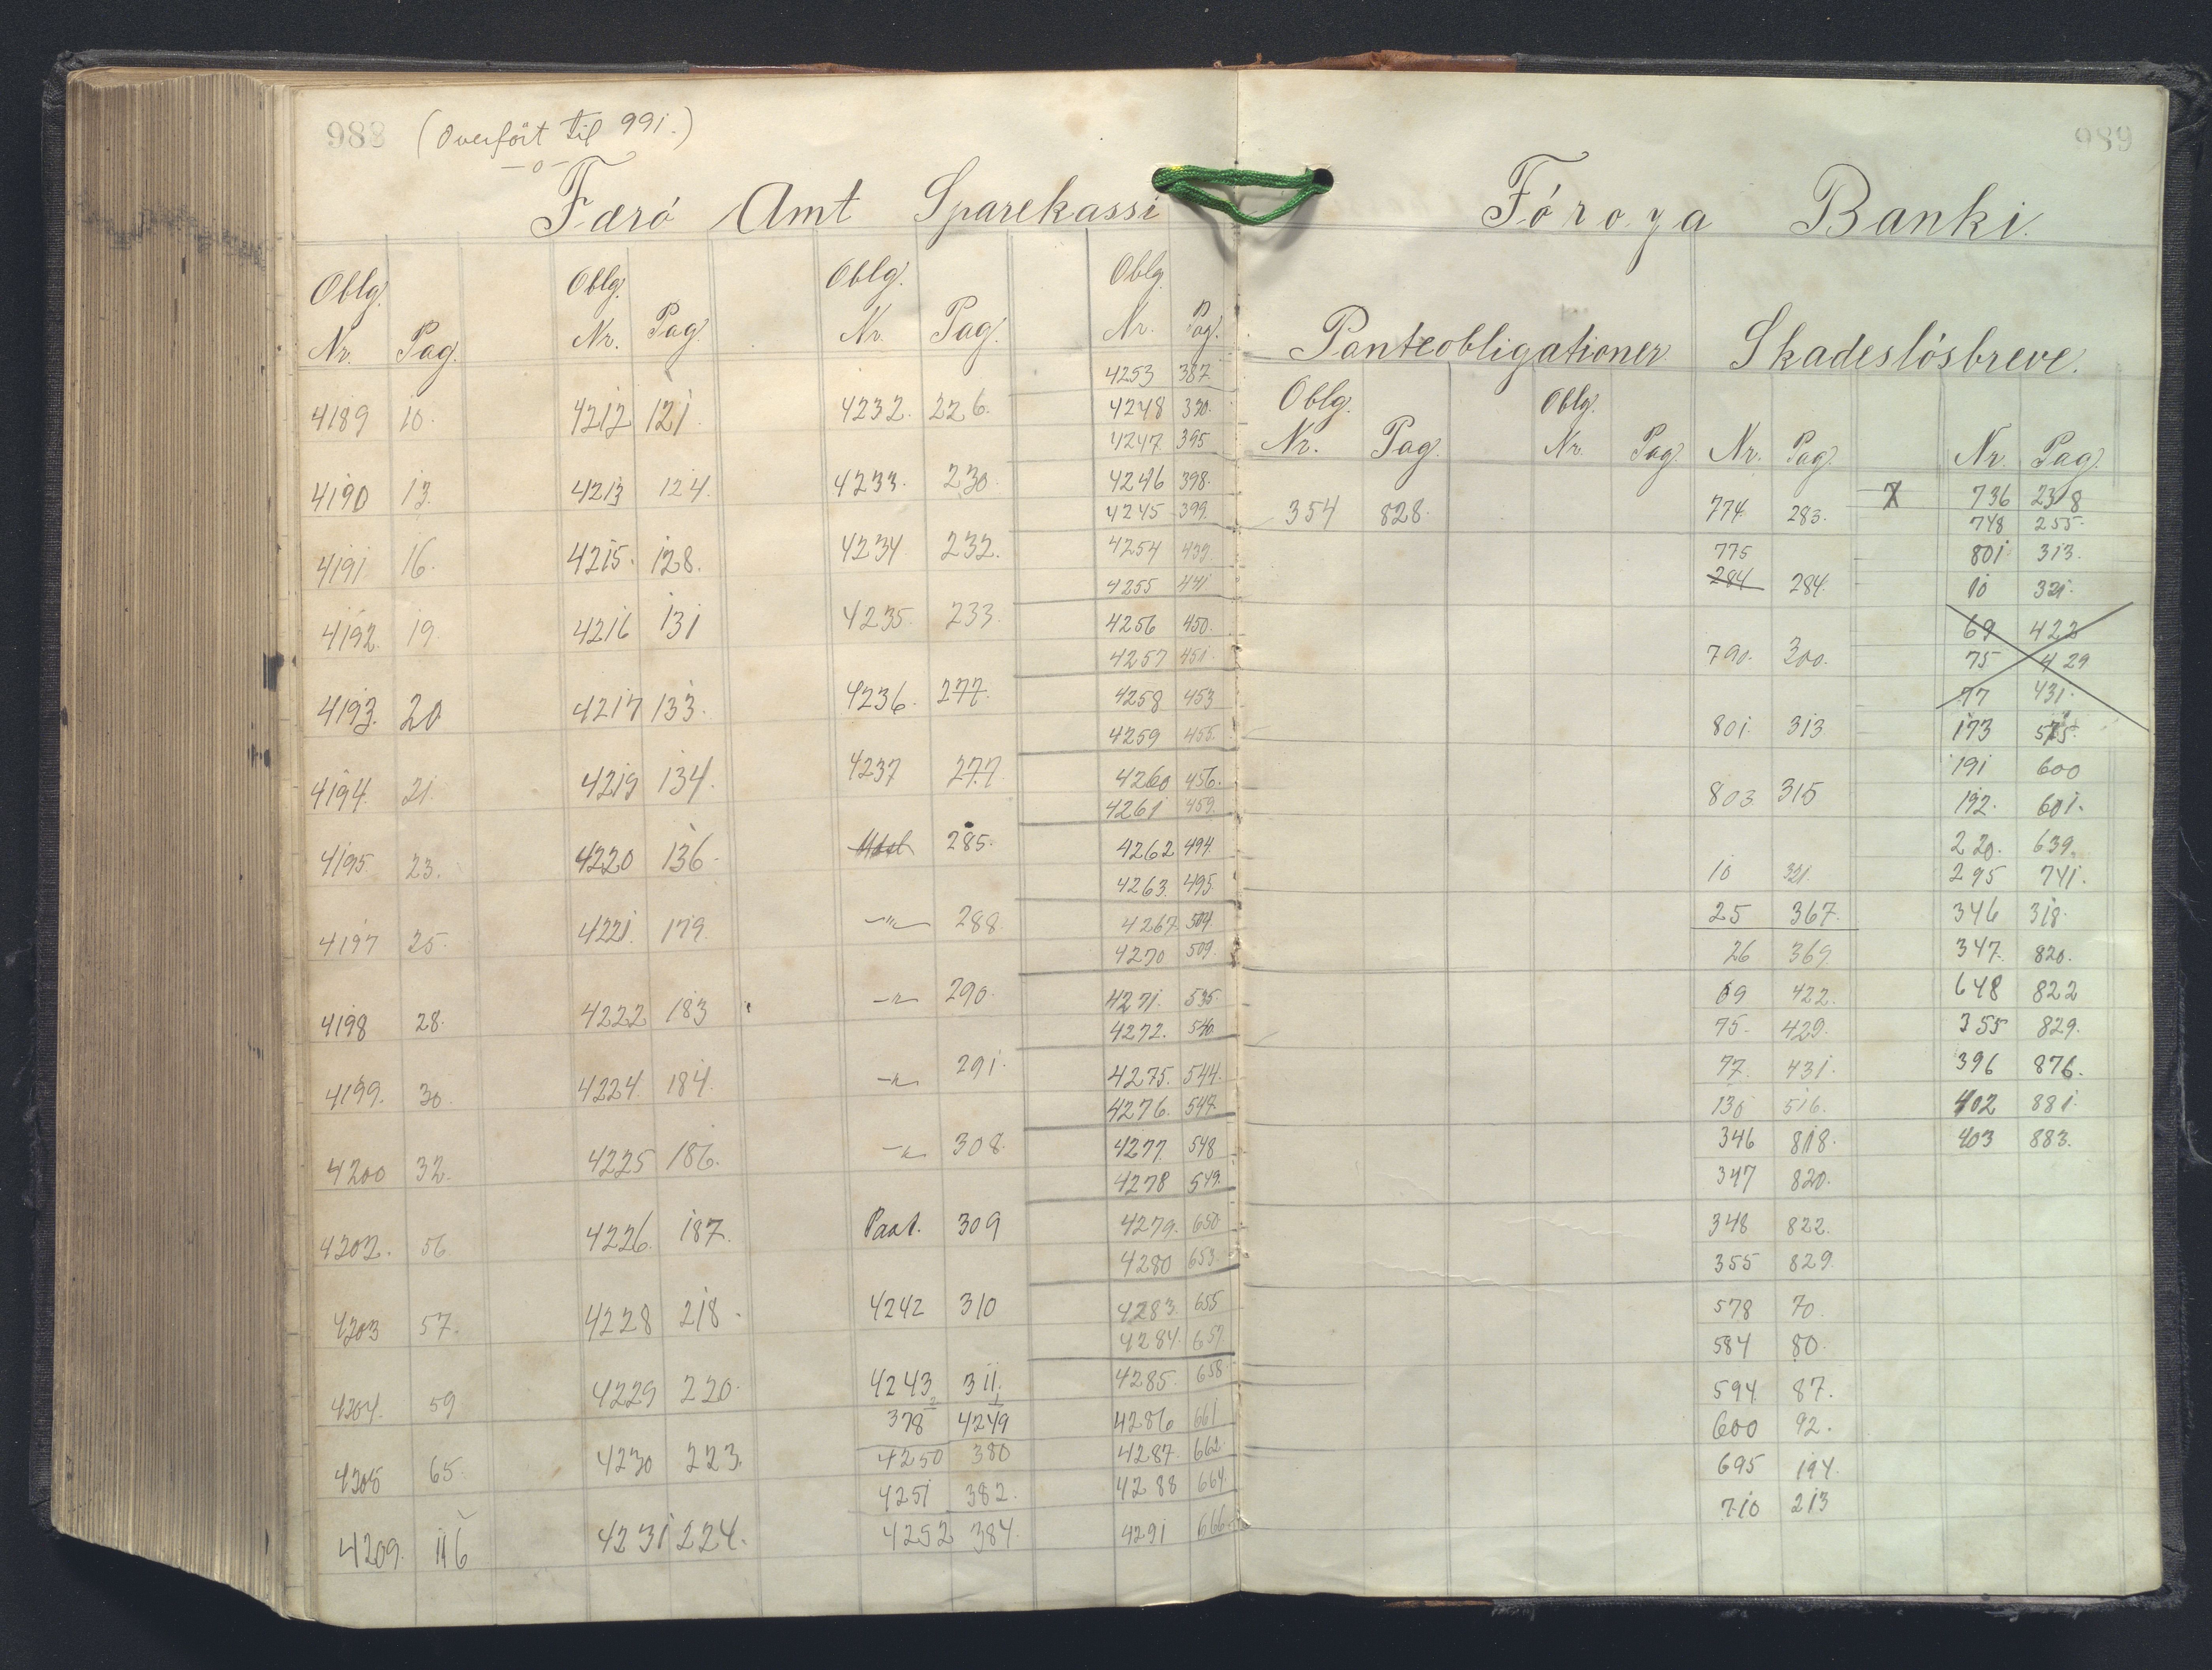 988 (Overfört til 991.)
—o—
Færó Amt Sparekassi
Oblg. Oblg. Oblg. Oblg.
Nr. Pag. Nr. Pag. Nr. Pag. Nr. Pag.
4253 387
4189 10 4212 121 4232. 226. 4248 390.
4247 395
4190 13. 4213 124. 4233. 230. 4246 398.
4245 399.
4191 16. 4215. 128. 4234 232. 4254 439
4255 441
4192. 19 4216 131 4235. 233. 4256 450.
4257 451.
4193. 20 4217 133. 4236. 277. 4258 453
4259 455.
4194. 21. 4219 134. 4237 277 4260 456.
4261 459.
4195 23. 4220 136. 285. 4262 494.
4263. 495.
4197 25. 4221. 179. —"— 288. 4267. 504
4270 509.
4198 28. 4222 183 —"— 290. 4271. 535.
4272. 540.
4199. 30. 4224. 184. —"— 291. 4275. 544.
4276. 547.
4200 32. 4225 186. —"— 308. 4277. 548
4278 549.
4202. 56 4226. 187. Pant. 309 4279. 650
4280 653.
4203 57. 4228 218. 4242 310 4283. 655
4284. 657.
4204. 59 4229 220. 4243 311. 4285. 658.
378 4249 4286 661
4205 65. 4230 223. 4250 380 4287. 662.
4251 382. 4288 664.
4209. 116 4231 224. 4252 384. 4291 666.
989
Fóroya Banki.
Panteobligationer. Skadeslósbreve.
Oblg. Oblg.
Nr. Pag. Nr. Pag. Nr. Pag. Nr. Pag.
354 828. 774. 283. X 736 238
748 255.
775 801 313.
284 284. 10 321.
69 422
790. 300. 75 429
77 431.
801. 313 173 575.
191 600
803 315 192. 601.
220. 639.
10 321. 295 741.
25 367. 346 318.
26 369. 347. 820.
69 422. 648 822
75. 429. 355 829.
77. 431. 396 876.
130 516. 402 881.
346 818. 403 883.
347 820.
348 822.
355 829.
578 70.
584 80.
594 87.
600 92.
695 194.
710 213